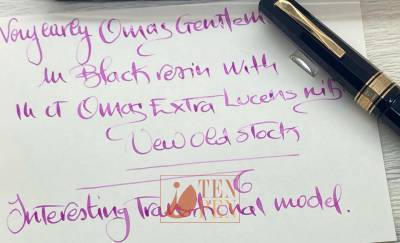 Very early Omas Gentlem
in Black resin with
14 ct Omas Extra Lucens nib
New old stock
TEN
PEN
Interesting Transitional model.